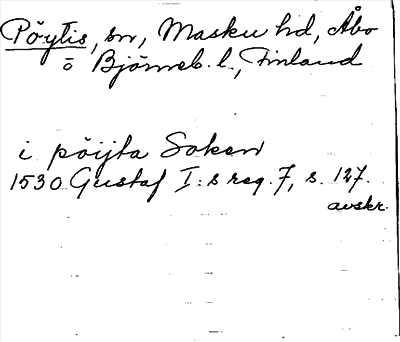 Pöytis, sn, Masku hd, Åbo
o Björneb. l., Finland
i pöijta Soken
1530 Gustaf I:s reg. 7, s. 127.
avskr.